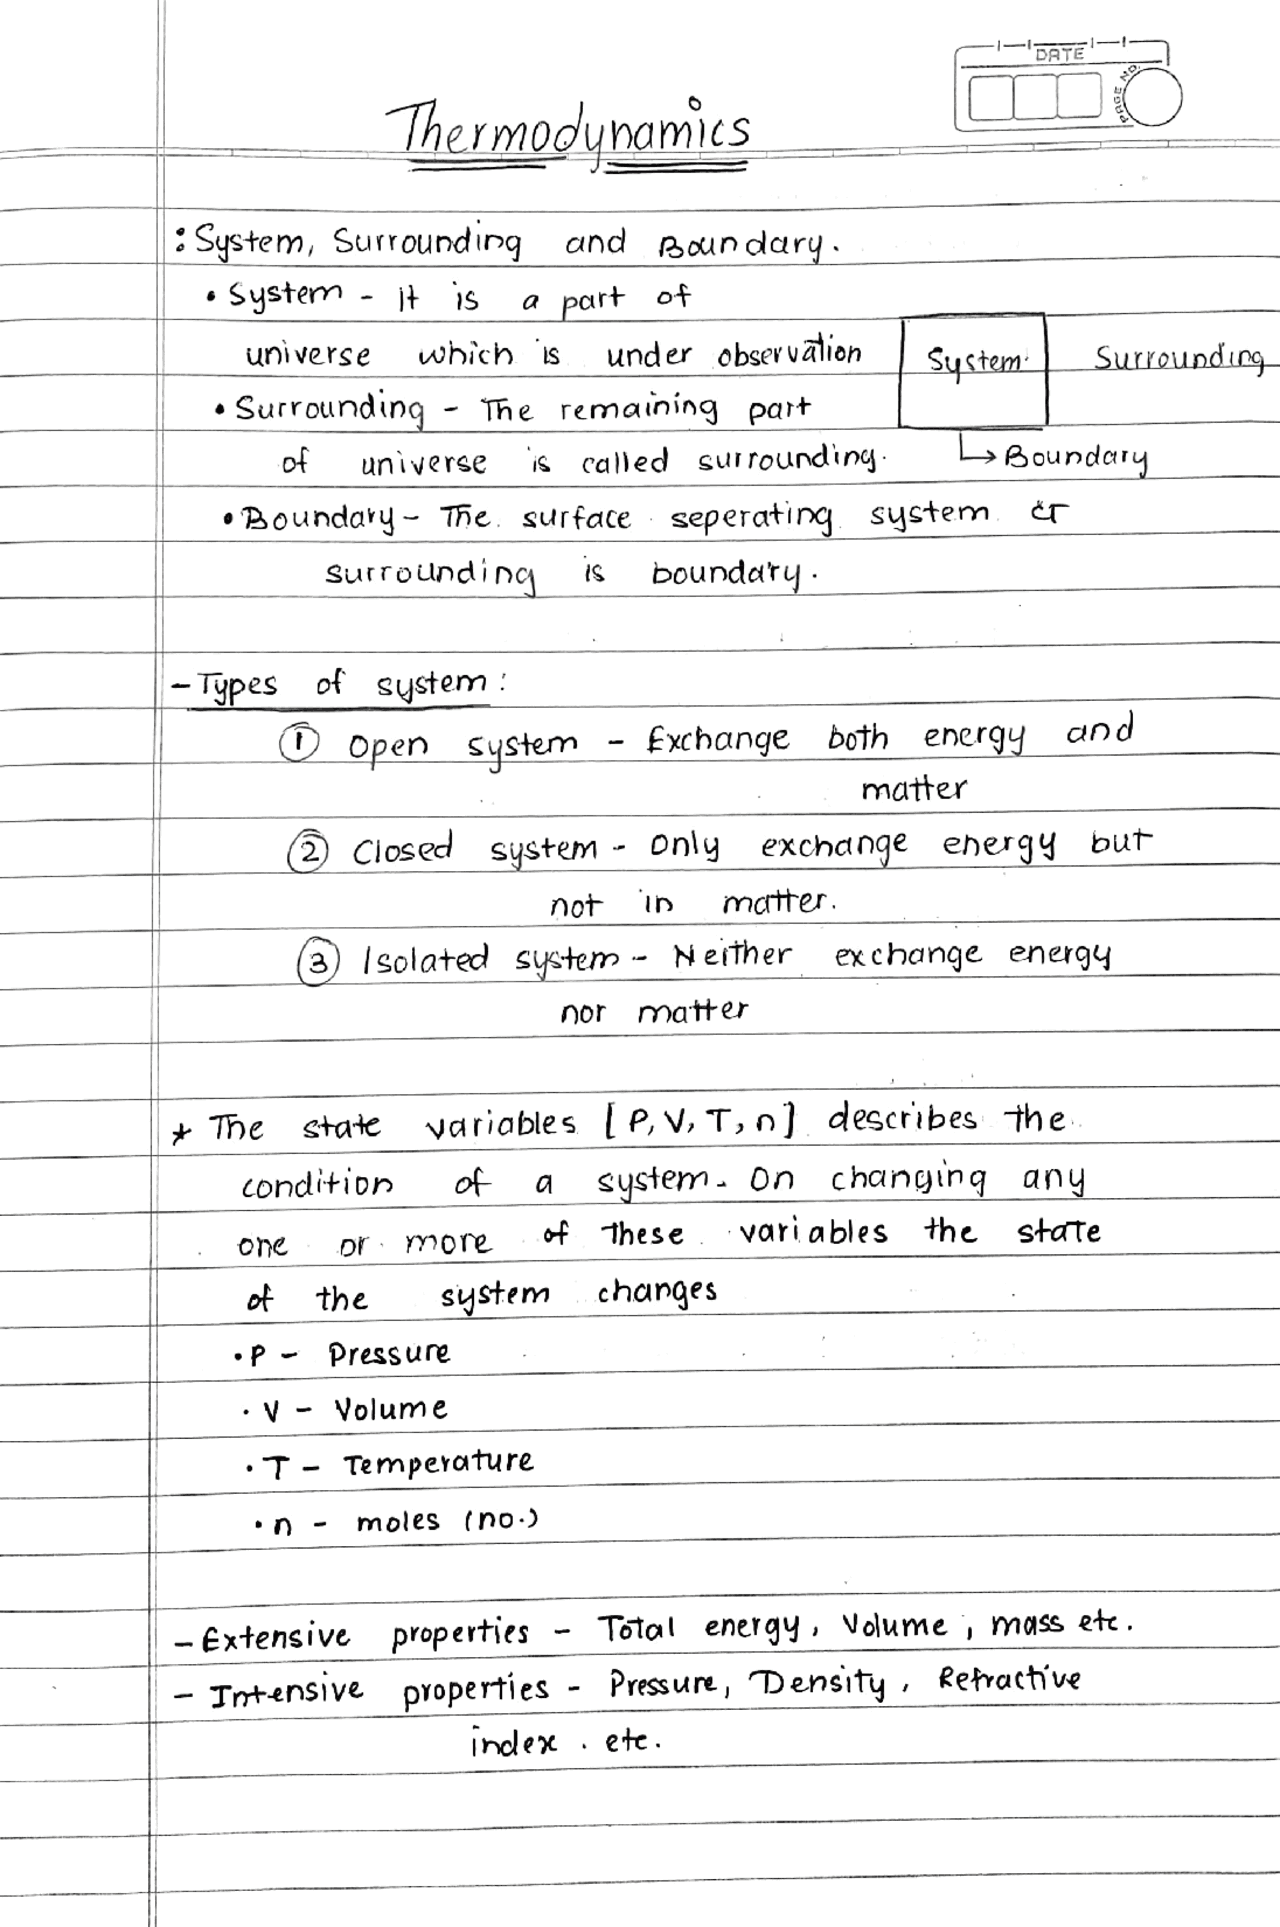 DATE
PAGE NO.
Thermodynamics
: System, Surrounding and Boundary.
• System - it is a part of
universe which is under observation
System Surrounding
• Surrounding - The remaining part
of universe is called surrounding.
↳ Boundary
• Boundary - The surface seperating system &
surrounding is boundary.
- Types of system :
① Open system - Exchange both energy and
matter
② Closed system - Only exchange energy but
not in matter.
③ Isolated system - Neither exchange energy
nor matter
* The state variables [P, V, T, n] describes the
condition of a system. On changing any
one or more of these variables the state
of the system changes
• P - Pressure
• V - Volume
• T - Temperature
• n - moles (no.)
- Extensive properties - Total energy, Volume, mass etc.
- Intensive properties - Pressure, Density, Refractive
index. etc.